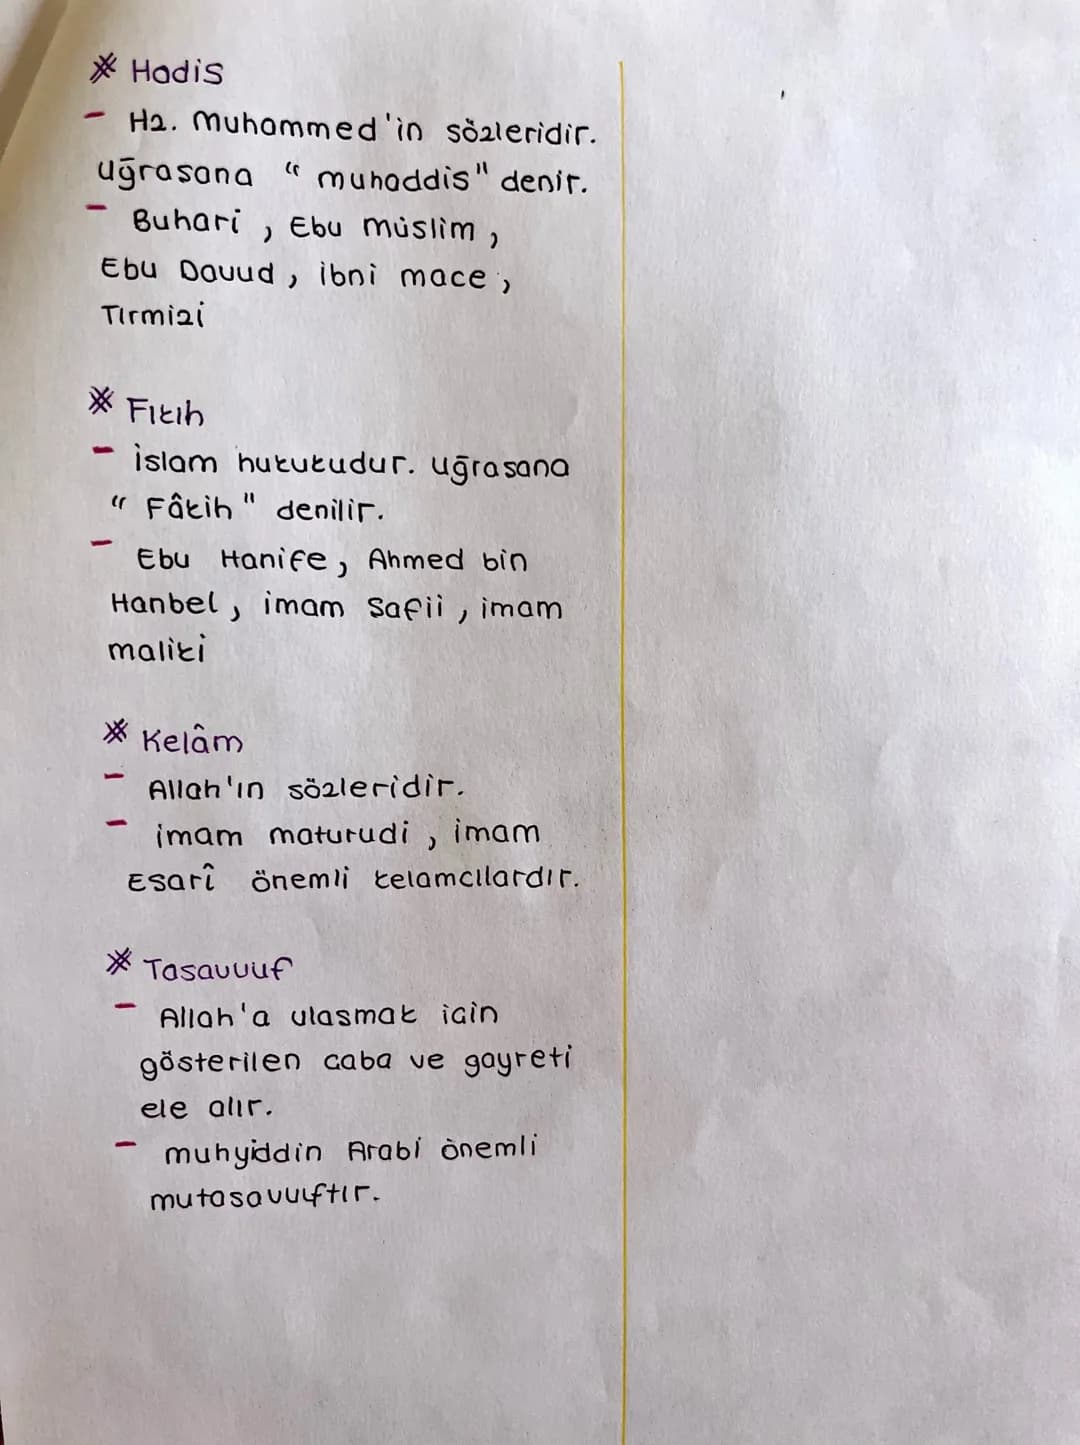 ※ Hadis
- Hz. Muhammed'in sözleridir.
Uğrasana "muhaddis" denir.
- Buhari, Ebu müslim,
Ebu Davud, ibni mace,
Tırmizi
※ Fıkıh
- İslam hukukudur. Uğrasana
"Fâkih" denilir.
- Ebu Hanife, Ahmed bin
Hanbel, imam Safii, imam
maliki
※ Kelâm
- Allah'ın sözleridir.
- imam maturudi, imam
Esarî önemli kelamcılardır.
※ Tasavvuf
- Allah'a ulasmak icin
gösterilen caba ve gayreti
ele alır.
- muhyiddin Arabi önemli
mutasavvıftır.